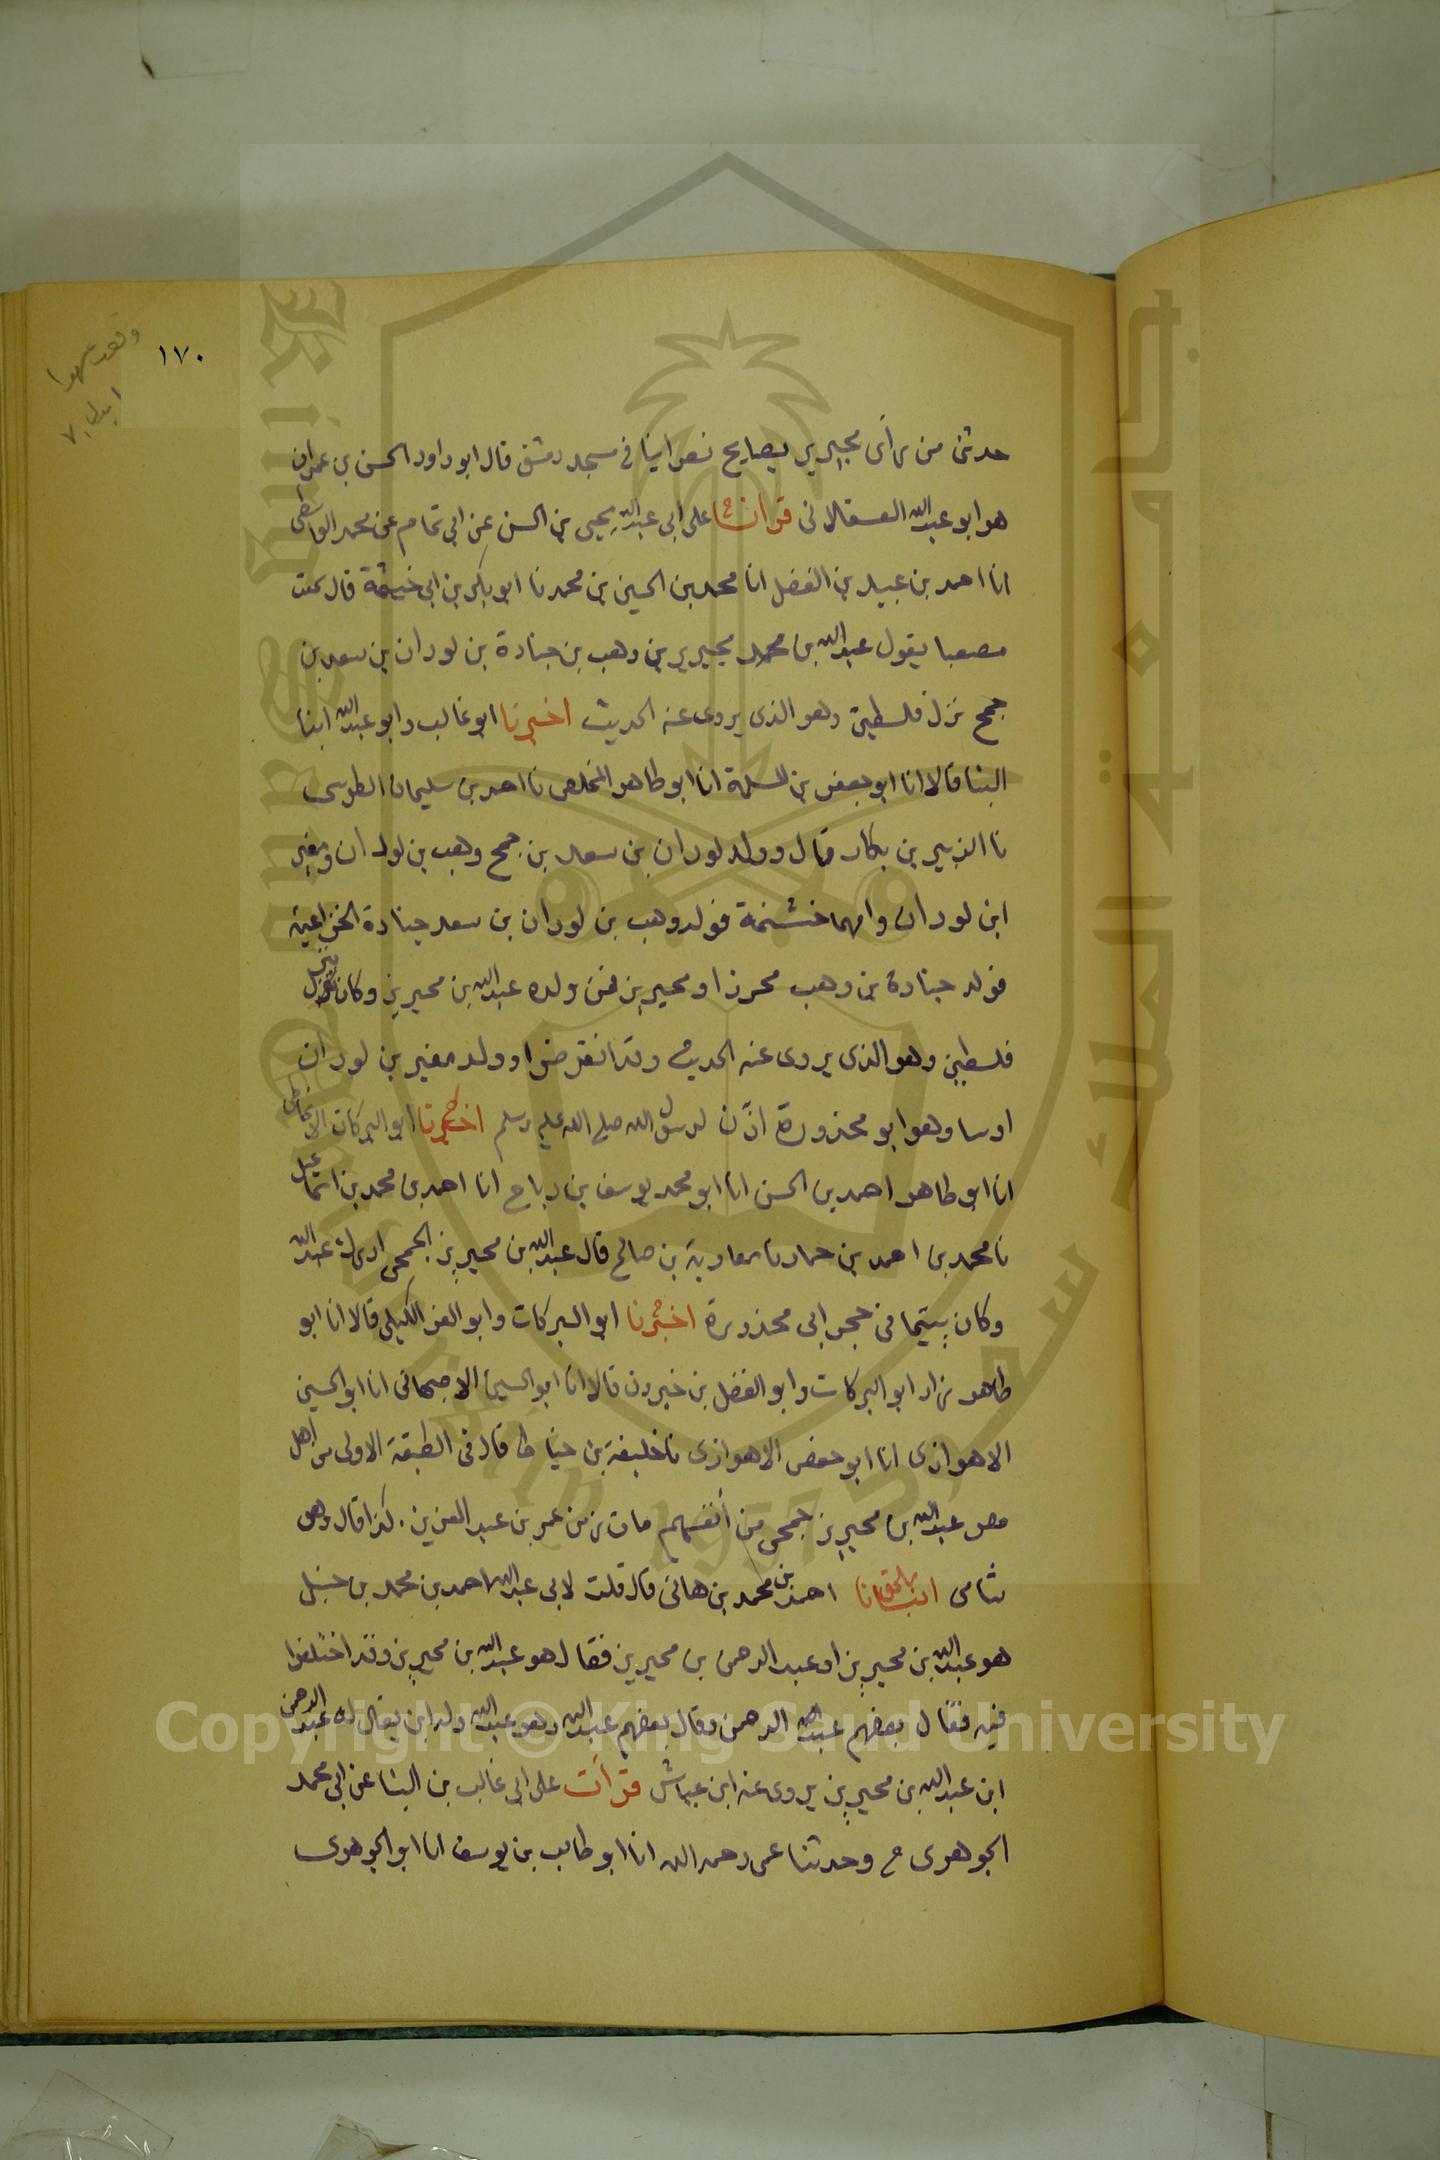 ١٧٠
حدثني من رأى محيريز يصافح نصرانيا في مسجد دمشق قال ابو داود الحسن بن عمران
هو ابو عبدالله العسقلاني قرأت على ابي عبدالله يحيى بن الحسن عن ابي تمام عن محمد الواسطي
انا احمد بن عبيد بن الفضل انا محمد بن الحسين بن محمد نا ابو بكر بن ابي خيثمة قال سمعت
مصعبا يقول عبدالله بن محمد محيريز بن وهب بن جنادة بن لوذان بن سعد بن
جمح نزل فلسطين وهو الذي يروى عنه الحديث اخبرنا ابو غالب وابو عبدالله ابنا
البنا قالا انا ابو جعفر بن المسلمة انا ابو طاهر المخلص نا احمد بن سليمان الطوسي
نا الزبير بن بكار قال وولد لوذان بن سعد بن جمح وهب بن لوذان ومغير
ابن لوذان وامهما خشنمة فولد وهب بن لوذان بن سعد جنادة الخزاعية
فولد جنادة بن وهب محرزا ومحيريز فمن ولده عبدالله بن محيريز وكان ينزل
فلسطين وهو الذي يروى عنه الحديث وقد انقرضوا وولد مغير بن لوذان
اوسا وهو ابو محذورة اذّن لرسول الله صلى الله عليه وسلم اخبرنا ابو البركات الانماطي
انا ابو طاهر احمد بن الحسن انا ابو محمد يوسف بن رباح انا احمد بن محمد بن اسماعيل
نا محمد بن احمد بن حماد نا معاوية بن صالح قال عبدالله بن محيريز الجمحي ادرك عبدالله
وكان يتيما في حجر ابي محذورة اخبرنا ابو البركات وابو العز الكيلي قالا انا ابو
طاهر زاد ابو البركات وابو الفضل بن خيرون قالا انا ابو الحسين الاصبهاني انا ابو الحسين
الاهوازي انا ابو حفص الاهوازي نا خليفة بن خياط قال في الطبقة الاولى من اهل
مصر عبدالله بن محيريز جمحي من أنفسهم مات زمن عمر بن عبد العزيز . كذا قال وهو
شامي احمد بن محمد بن هانئ قال قلت لابي عبدالله احمد بن محمد بن حنبل
هو عبدالله بن محيريز او عبد الرحمن بن محيريز فقال هو عبدالله بن محيريز وقد اختلفوا
فيه فقال بعضهم عبد الرحمن وقال بعضهم عبدالله وهو عبدالله وله ابن يقال له عبد الرحمن
ابن عبدالله بن محيريز يروى عنه ابن عياش قرأت على ابي غالب بن البنا عن ابي محمد
الجوهري ح وحدثنا عمي رحمه الله انا ابو طالب بن يوسف انا ابو الجوهري
Copyright © King Saud University